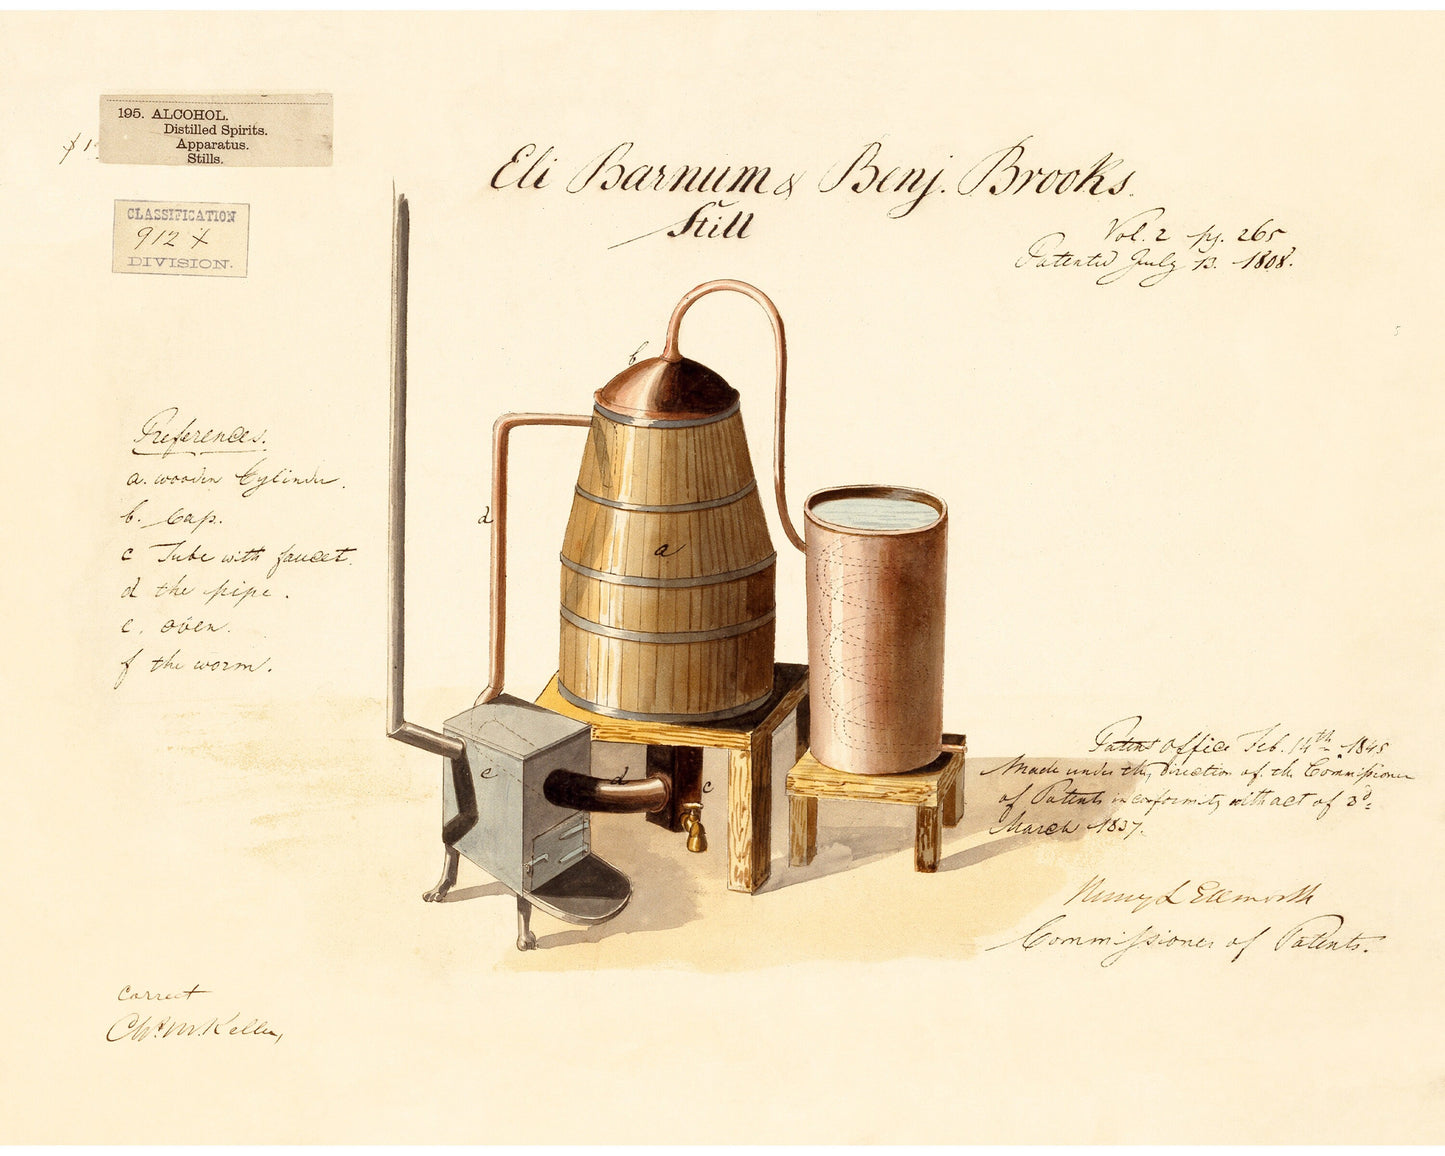 195. ALCOHOL.
Distilled Spirits.
Apparatus.
Stills.
CLASSIFICATION
912 X
DIVISION.
Eli Barnum & Benj. Brooks.
Still
Vol. 2 pg. 265
Patented July 13. 1808.
References.
a. wooden Cylinder.
b. Cap.
c Tube with faucet.
d the pipe.
e. oven.
f the worm.
b
d
a
e
d
c
Patent Office Feb. 14th 1845
Made under the direction of the Commissioner
of Patents in conformity with act of 3d
March 1837.
Henry L Ellsworth
Commissioner of Patents.
Correct
Chs. M. Keller,